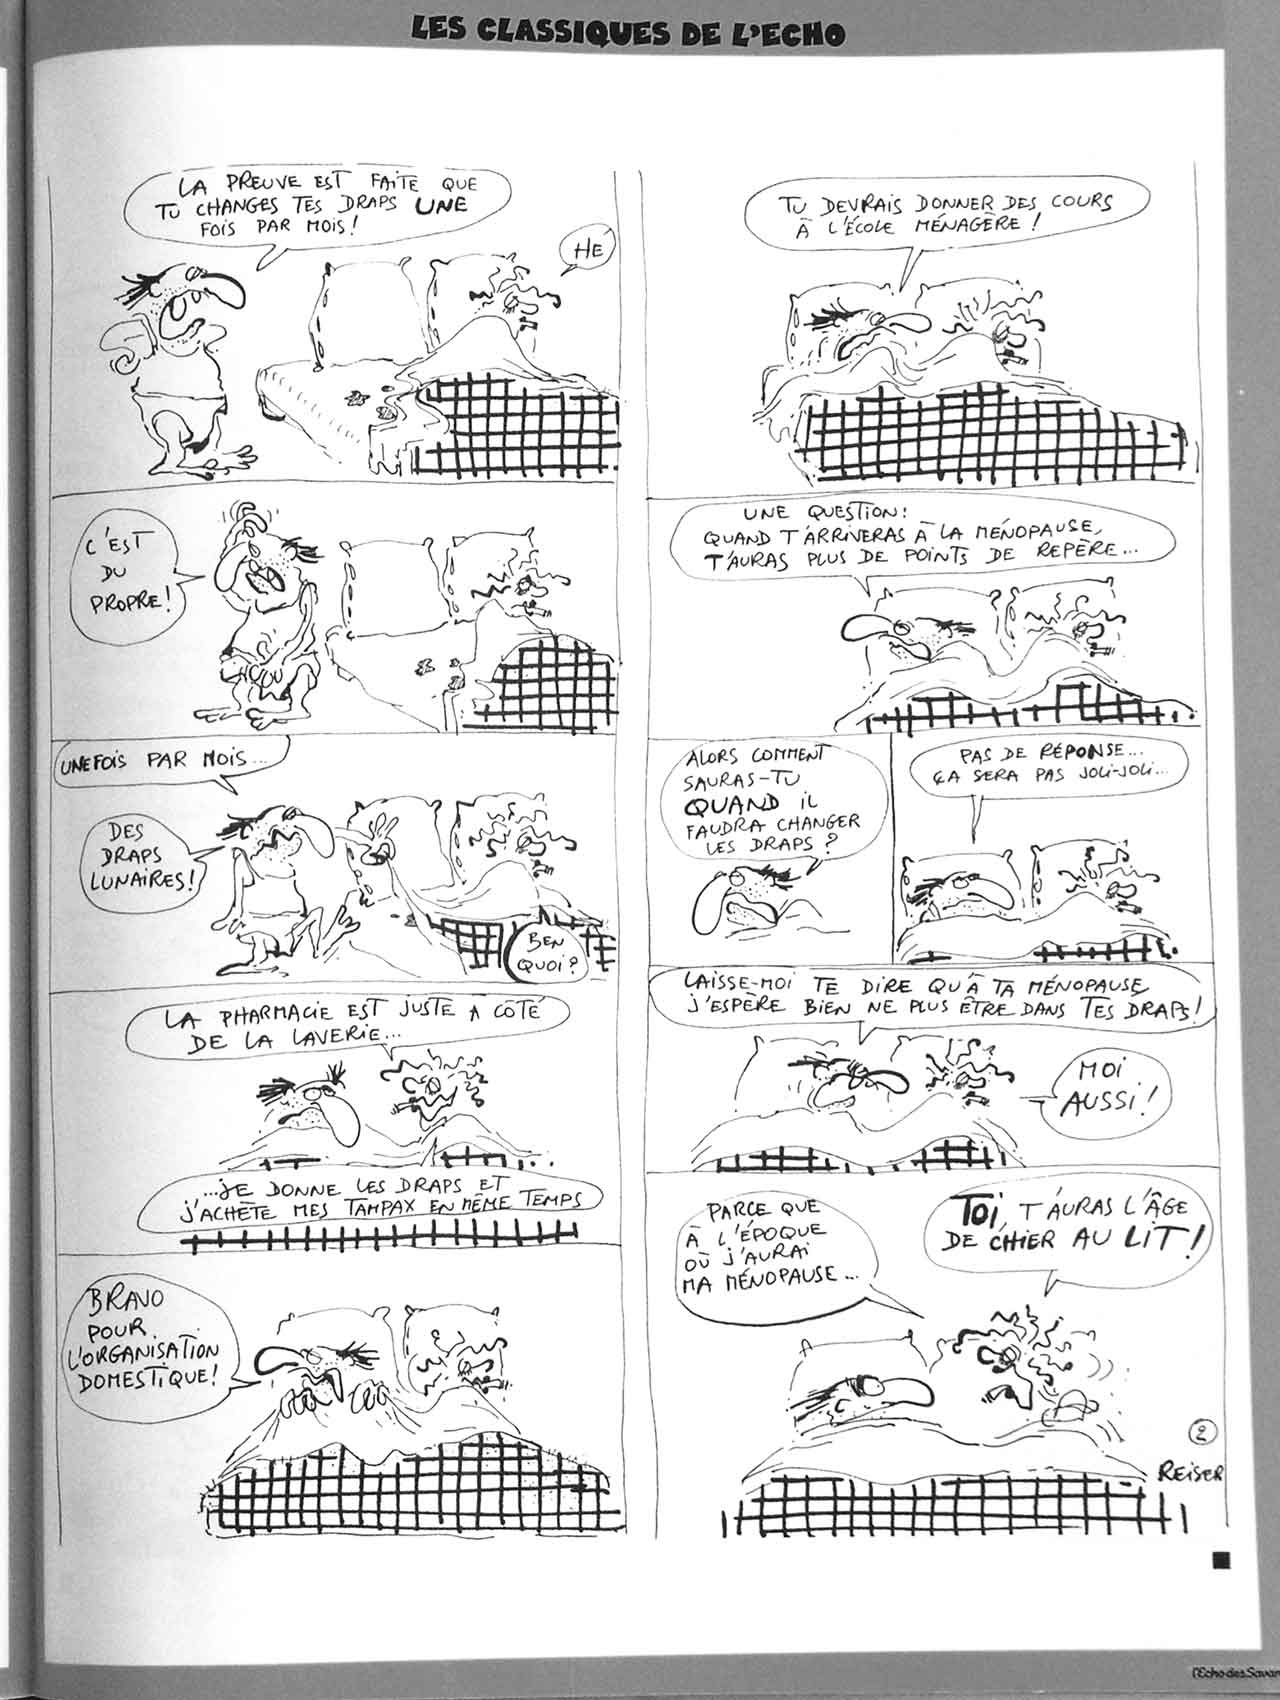 LES CLASSIQUES DE L'ECHO
LA PREUVE EST FAITE QUE
TU CHANGES TES DRAPS UNE
FOIS PAR MOIS!
HÉ
C'EST
DU
PROPRE!
UNE FOIS PAR MOIS...
DES
DRAPS
LUNAIRES!
BEN
QUOI?
LA PHARMACIE EST JUSTE À CÔTÉ
DE LA LAVERIE...
...JE DONNE LES DRAPS ET
J'ACHÈTE MES TAMPAX EN MÊME TEMPS
BRAVO
POUR
L'ORGANISATION
DOMESTIQUE!
TU DEVRAIS DONNER DES COURS
À L'ÉCOLE MÉNAGÈRE!
UNE QUESTION:
QUAND T'ARRIVERAS À LA MÉNOPAUSE,
T'AURAS PLUS DE POINTS DE REPÈRE...
ALORS COMMENT
SAURAS-TU
QUAND IL
FAUDRA CHANGER
LES DRAPS?
PAS DE RÉPONSE...
ÇA SERA PAS JOLI-JOLI...
LAISSE-MOI TE DIRE QU'À TA MÉNOPAUSE
J'ESPÈRE BIEN NE PLUS ÊTRE DANS TES DRAPS!
MOI
AUSSI!
PARCE QUE
À L'ÉPOQUE
OÙ J'AURAI
MA MÉNOPAUSE...
TOI, T'AURAS L'ÂGE
DE CHIER AU LIT!
2
REISER
l'Echo des Savan